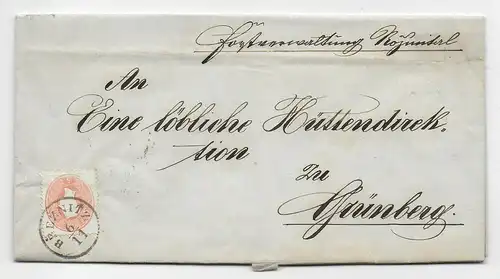 Forstverwaltung Rožmital
An
Eine löbliche Hüttendirek-
tion
zu
Grünberg.
BŘEZNITZ
6
11